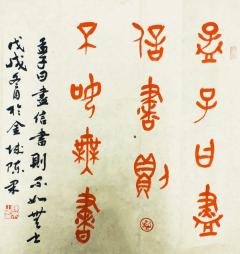 孟子曰盡
信書則
不如無書
孟子曰盡信書則不如無書
戊戌冬月於金城陳